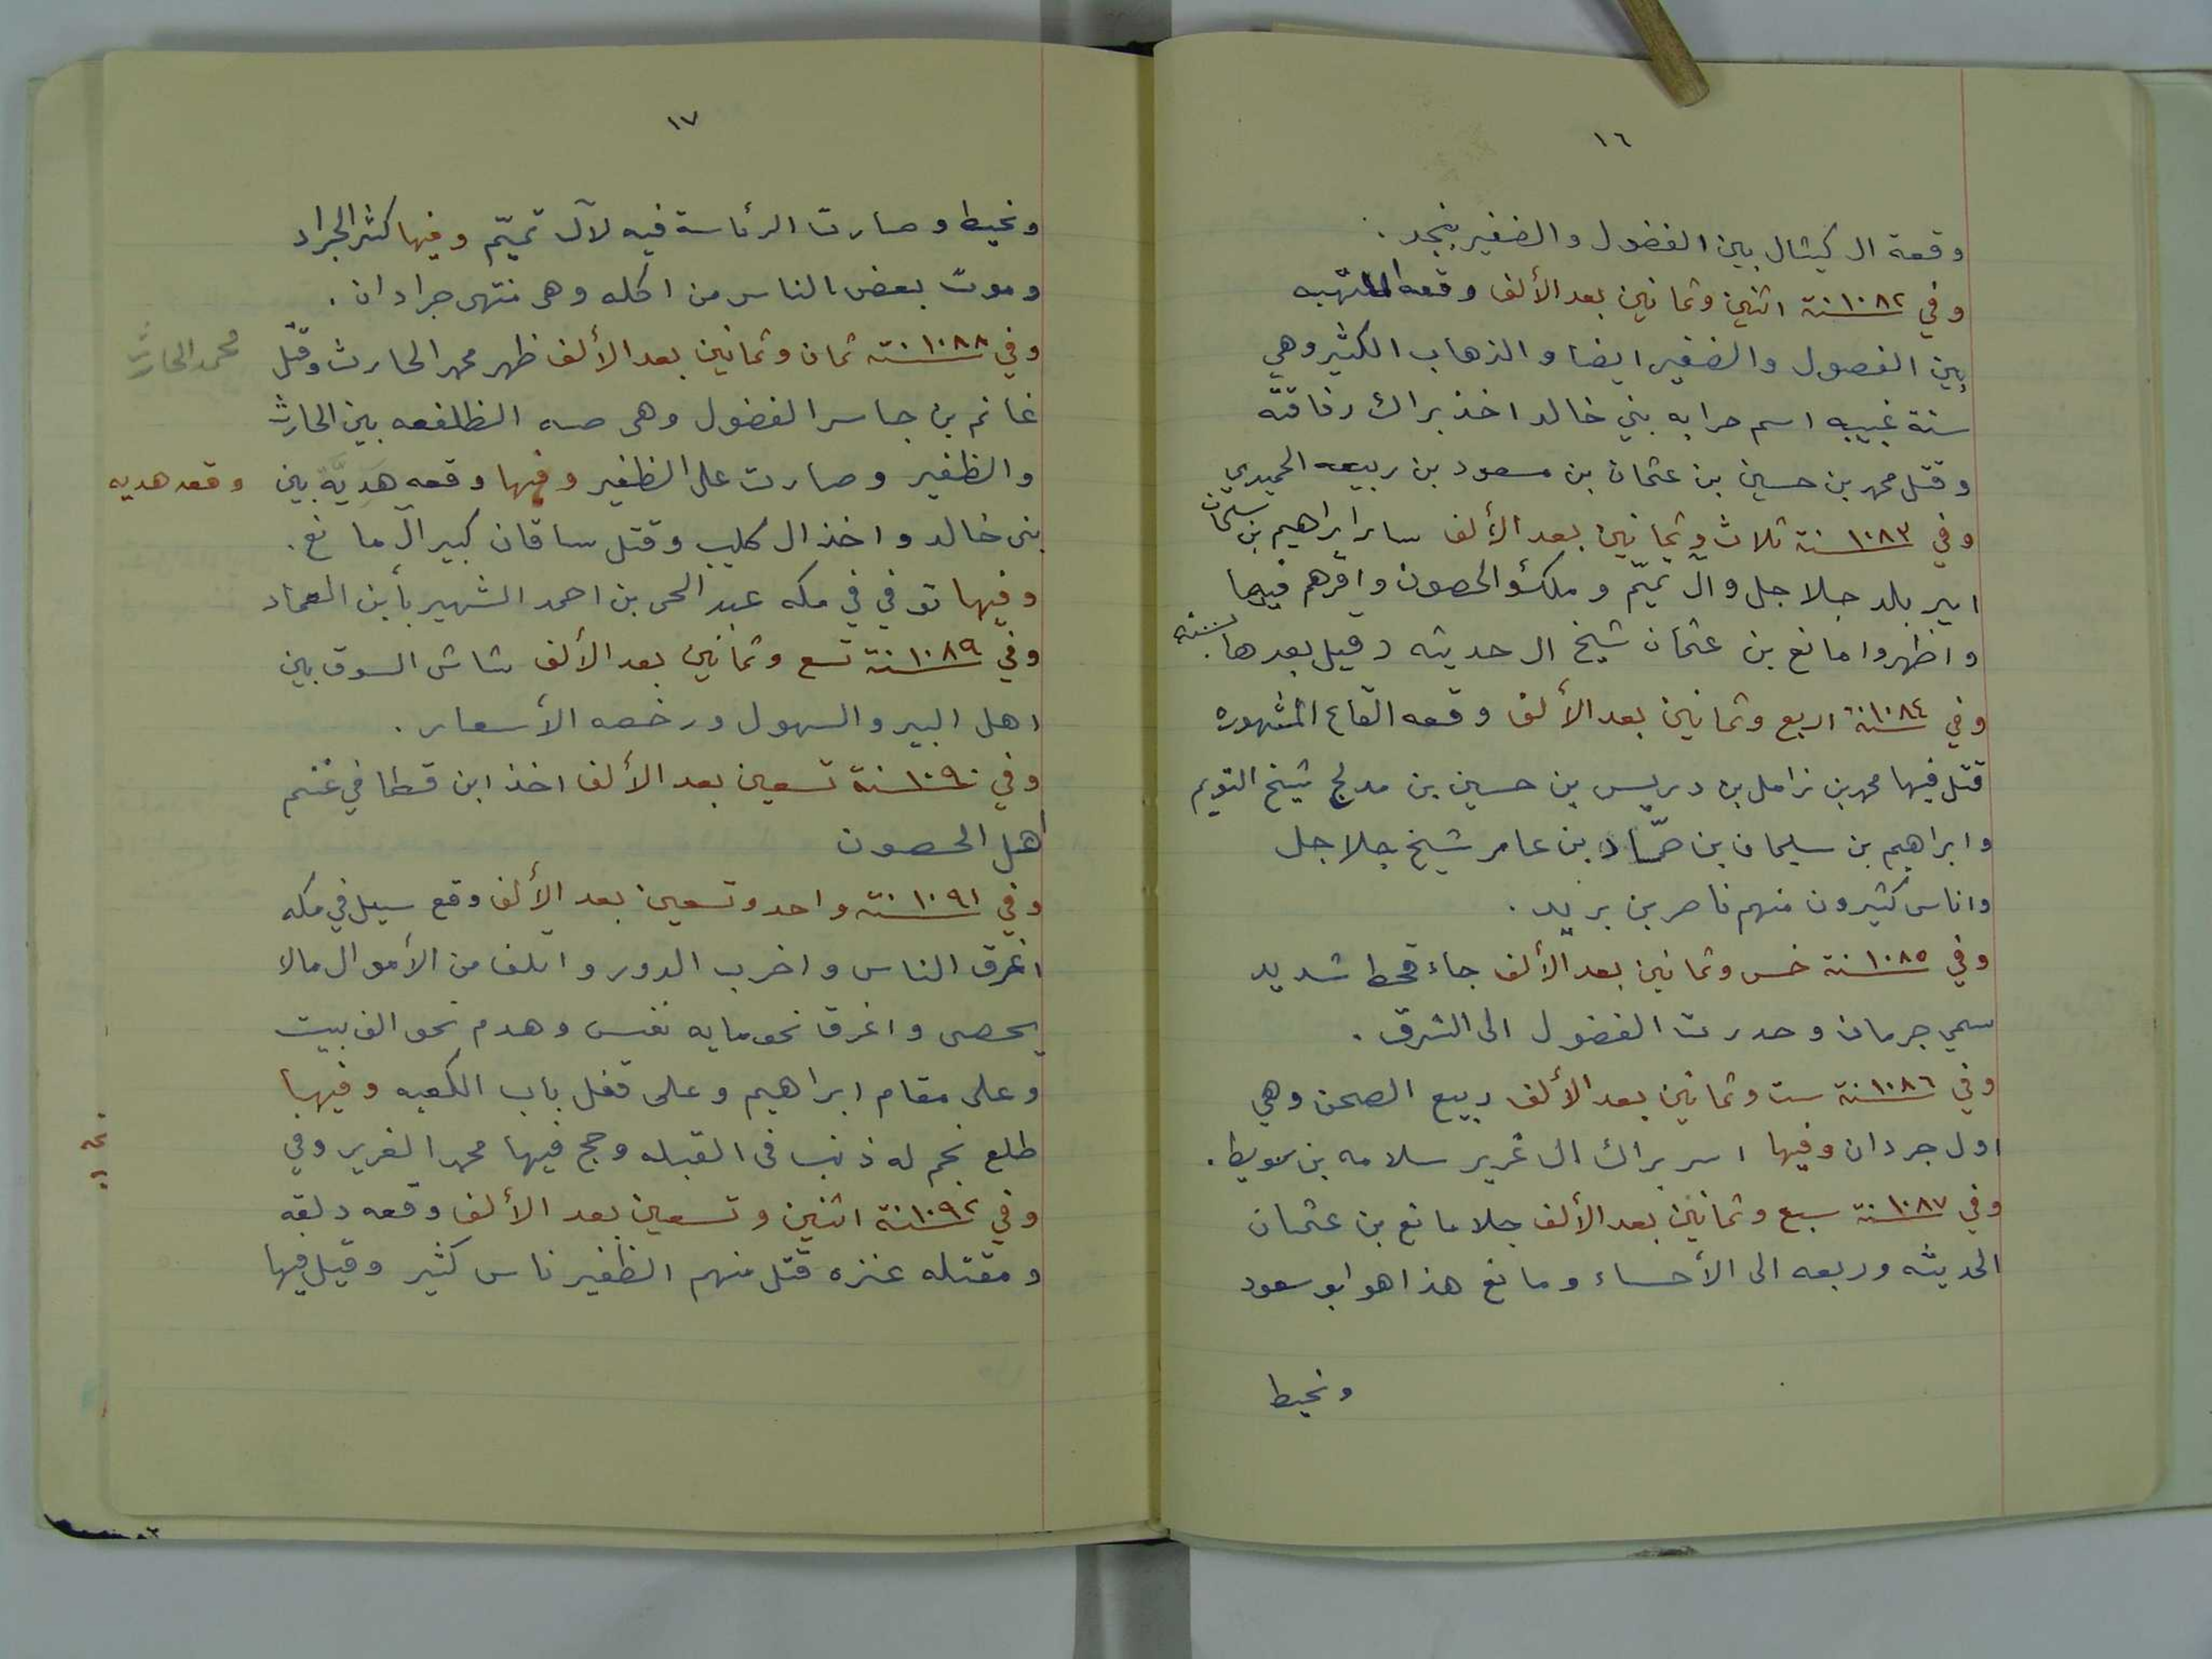 ١٦
وقعة ال كيثال بين الفضول والضفير بنجد .
وفي ١٠٨٢ سنة اثنين وثمانين بعد الألف وقعه الملتهبه
بين الفصول والضفير ايضا والذهاب الكثير وهي
سنة غبيبه اسم حرابه بني خالد اخذ براك رفاقته
وقتل محمد بن حسين بن عثمان بن مسعود بن ربيعه الحميدي
وفي ١٠٨٣ سنة ثلاث وثمانين بعد الألف سار ابراهيم بن سليمان
امير بلد جلاجل وآل تميّم وملكؤ الحصون واقرهم فيها
واظهروا مانع بن عثمان شيخ ال حديثه وقيل بعدها بسنه
وفي ١٠٨٤ سنة اربع وثمانين بعد الألف وقعه القاع المشهوره
قتل فيها محمد بن زامل بن دريس بن حسين بن مدلج شيخ التويم
وابراهيم بن سليمان بن حمّاد بن عامر شيخ جلاجل
واناس كثيرون منهم ناصر بن بريد .
وفي ١٠٨٥ سنة خمس وثمانين بعد الألف جاء قحط شديد
سمي جرمان وحدرت الفضول الى الشرق .
وفي ١٠٨٦ سنة ست وثمانين بعد الألف ربيع الصحن وهي
اول جردان وفيها اسر براك ال غرير سلامه بن صويط .
وفي ١٠٨٧ سنة سبع وثمانين بعد الألف جلا مانع بن عثمان
الحديثه وربعه الى الأحساء ومانع هذا هو ابو سعود
ونحيط
١٧
ونحيط وصارت الرئاسة فيه لآل تميّم وفيها كثر الجراد
وموت بعض الناس من اكله وهي منتهى جرادان .
وفي ١٠٨٨ سنة ثمان وثمانين بعد الألف ظهر محمد الحارث وقتل
محمد الحارث
غانم بن جاسر الفضول وهي الظلفعه بين الحارث
والظفير وصارت على الظفير وفيها وقعه هديّة بين
وقعه هديه
بني خالد واخذ ال كليب وقتل ساقان كبير آل مانع .
وفيها توفي في مكه عبد الحى بن احمد الشهير بأبن العماد
وفي ١٠٨٩ سنة تسع وثمانين بعد الألف شاش السوق بين
اهل البير والسهول ورخصه الأسعار .
وفي ١٠٩٠ سنة تسعين بعد الألف اخذ ابن قطا في غنم
اهل الحصون
وفي ١٠٩١ سنة واحد وتسعين بعد الألف وقع سيل في مكه
اغرق الناس واخرب الدور واتلف من الأموال مالا
يحصى واغرق نحو مايه نفس وهدم نحو الف بيت
وعلى مقام ابراهيم وعلى قفل باب الكعبه وفيها
طلع نجم له ذنب فى القبله وحج فيها محمد الغرير وفي
وفي ١٠٩٢ سنة اثنين وتسعين بعد الألف وقعه دلقه
ومقتله عنزه قتل منهم الظفير ناس كثير وقيل فيها